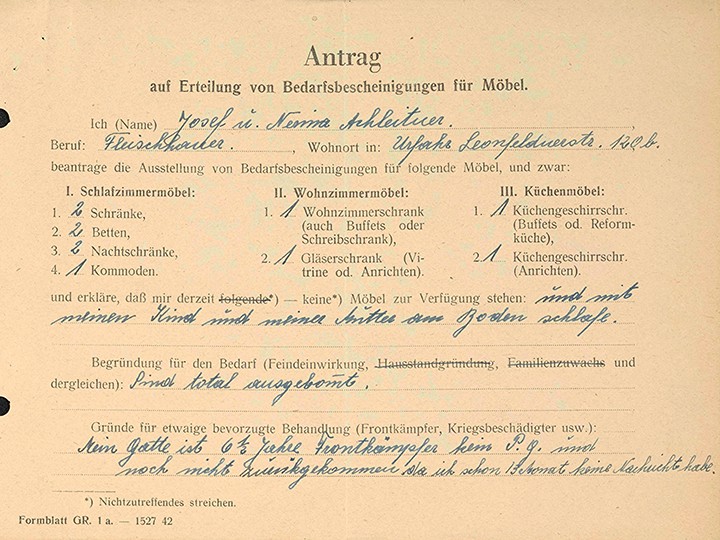 Antrag
auf Erteilung von Bedarfsbescheinigungen für Möbel.
Ich (Name) Josef u. Nerina Achleitner.
Beruf: Fleischhauer. , Wohnort in: Urfahr Leonfelduerstr. 120b.
beantrage die Ausstellung von Bedarfsbescheinigungen für folgende Möbel, und zwar:
I. Schlafzimmermöbel: II. Wohnzimmermöbel: III. Küchenmöbel:
1. 2 Schränke, 1. 1 Wohnzimmerschrank 1. 1 Küchengeschirrschr.
2. 2 Betten, (auch Buffets oder (Buffets od. Reform-
3. 2 Nachtschränke, Schreibschrank), küche),
4. 1 Kommoden. 2. 1 Gläserschrank (Vi- 2. 1 Küchengeschirrschr.
trine od. Anrichten). (Anrichten).
und erkläre, daß mir derzeit folgende*) — keine*) Möbel zur Verfügung stehen: und mit
meinen Kind und meiner Mutter am Boden schlafe.
Begründung für den Bedarf (Feindeinwirkung, Hausstandgründung, Familienzuwachs und
dergleichen): Sind total ausgebomt.
Gründe für etwaige bevorzugte Behandlung (Frontkämpfer, Kriegsbeschädigter usw.):
Mein Gatte ist 6½ Jahre Frontkämpfer kein P.G. und
noch nicht zurükgekommen da ich schon 15 Monat keine Nachricht habe.
*) Nichtzutreffendes streichen.
Formblatt GR. 1 a. — 1527 42